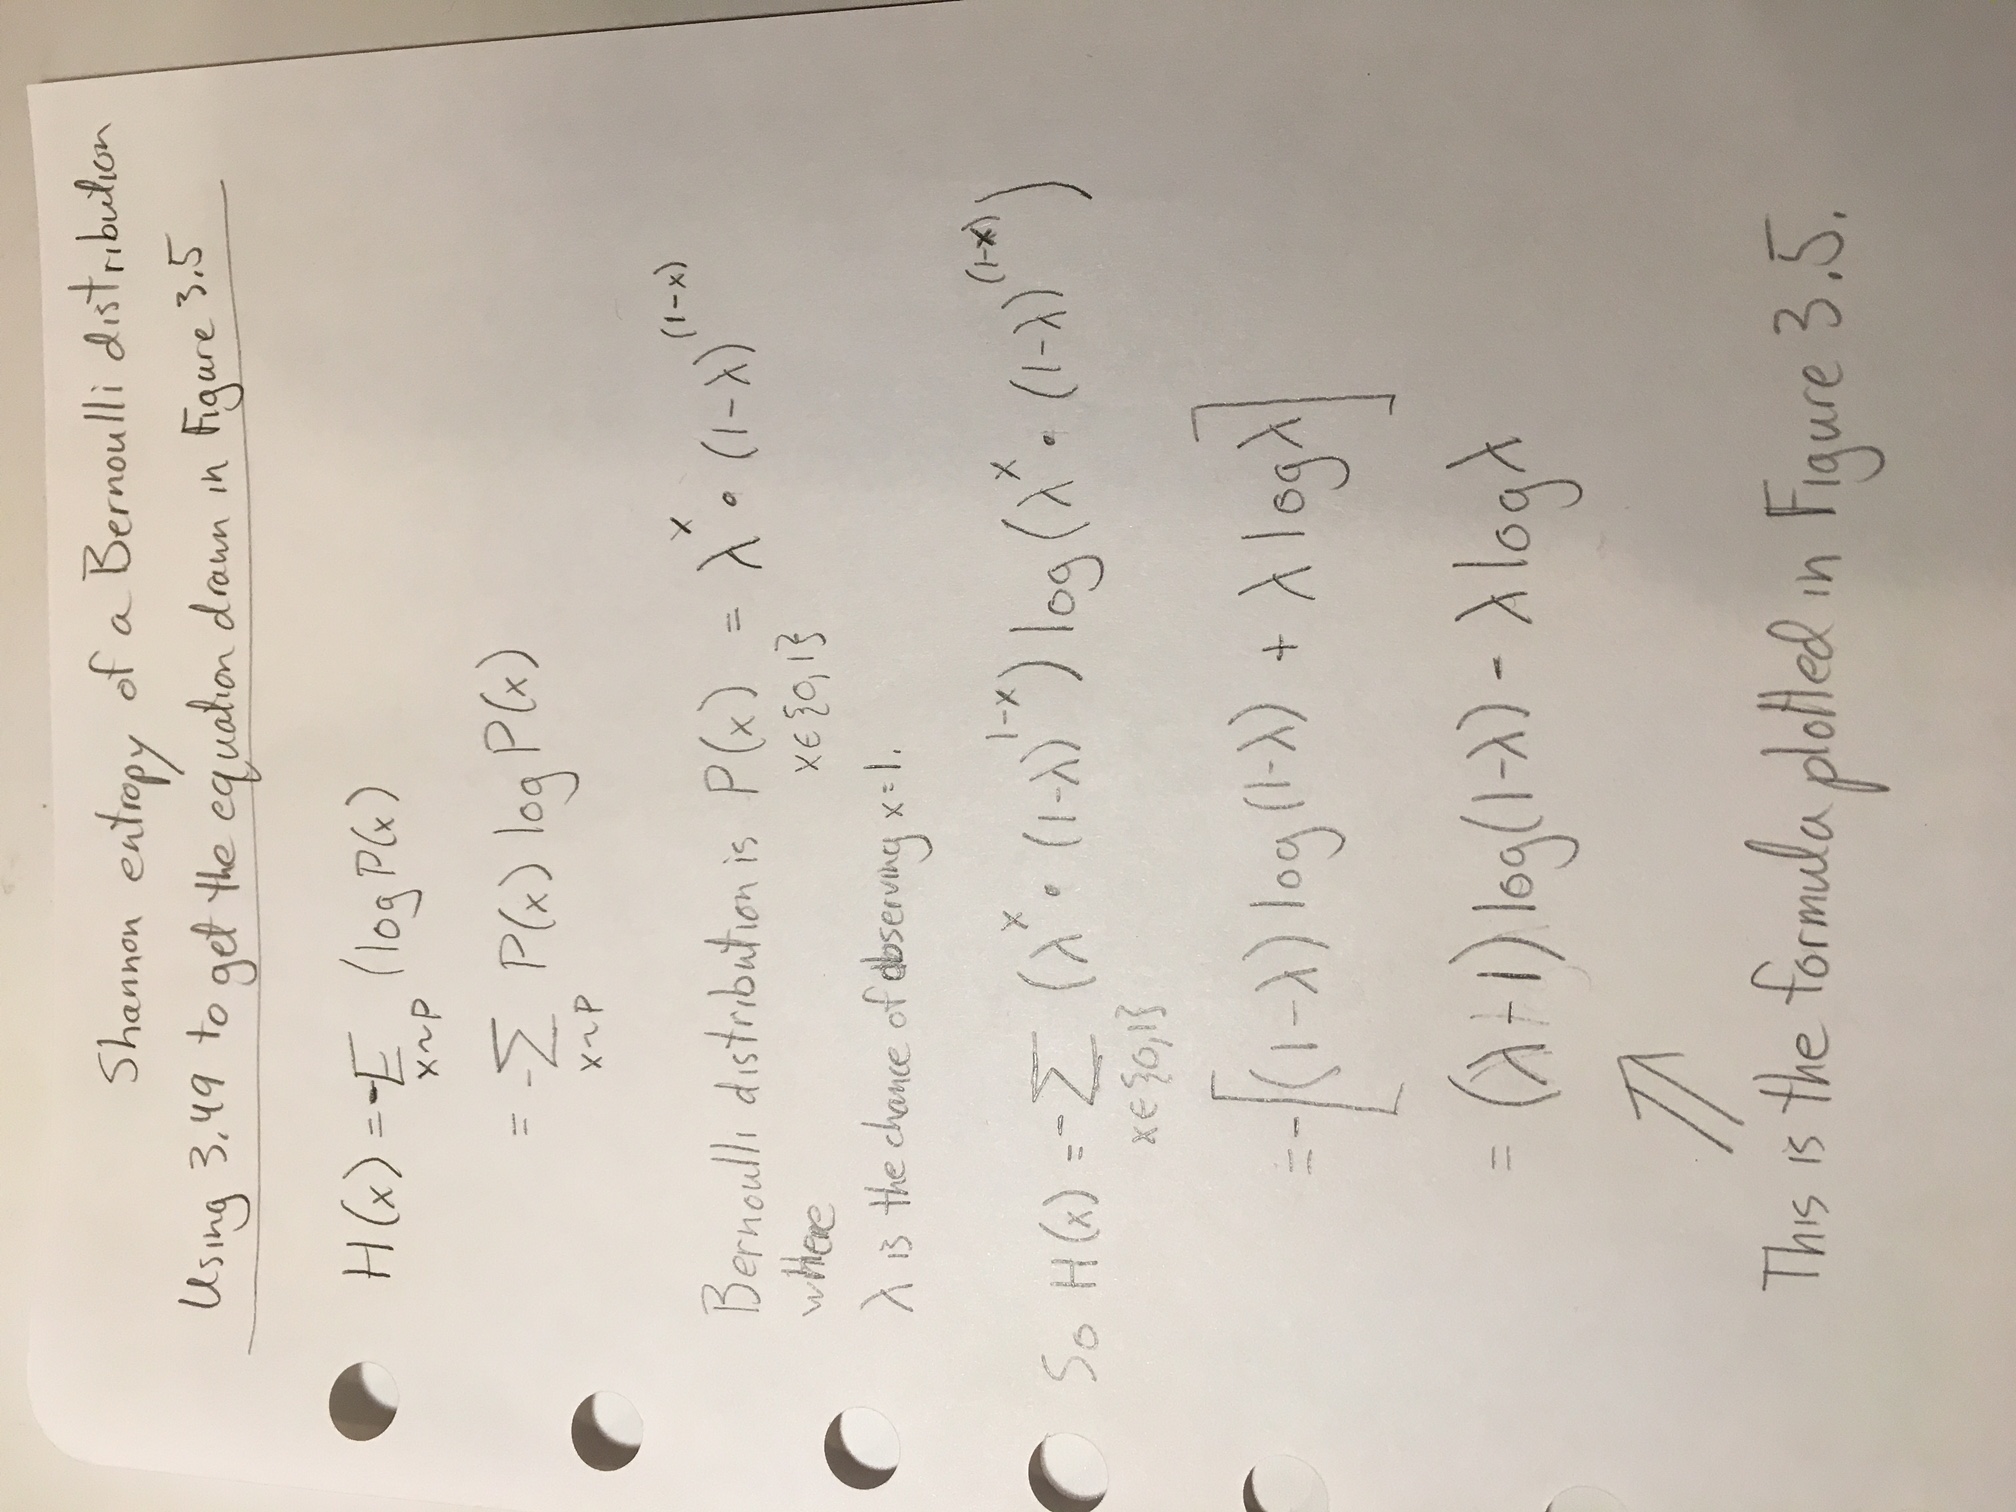 Shannon entropy of a Bernoulli distribution
Using 3.49 to get the equation drawn in Figure 3.5
H(x) = -E (log P(x)
x~P
= -∑ P(x) log P(x)
x~P
Bernoulli distribution is P(x) = λ^x • (1-λ)^(1-x)
where x∈{0,1}
λ is the chance of observing x=1.
So H(x) = -∑ (λ^x • (1-λ)^1-x) log(λ^x • (1-λ)^(1-x))
x∈{0,1}
= -[(1-λ) log(1-λ) + λ log λ]
= (λ-1) log(1-λ) - λ log λ
This is the formula plotted in Figure 3.5.